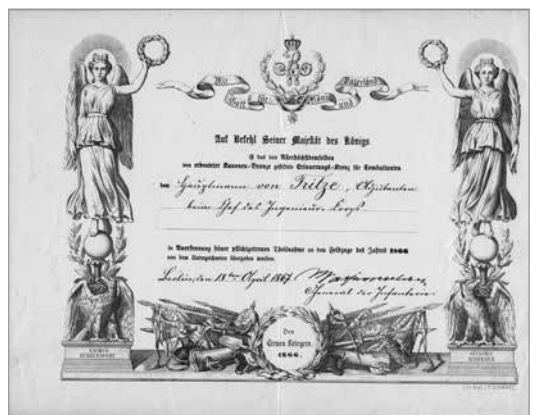 Mit Gott für König und Vaterland
Auf Befehl Seiner Majestät des Königs
ist das von Allerhöchstdemselben
von eroberter Kanonen-Bronze gestiftete Erinnerungs-Kreuz für Combattanten
dem Hauptmann von Fritze, Adjutanten
beim Chef des Ingenieur-Corps
in Anerkennung seiner pflichtgetreuen Theilnahme an dem Feldzuge des Jahres 1866
von dem Unterzeichneten übergeben worden.
Berlin, den 18ten April 1867.
General der Infanterie
Den
Treuen Kriegern
1866.